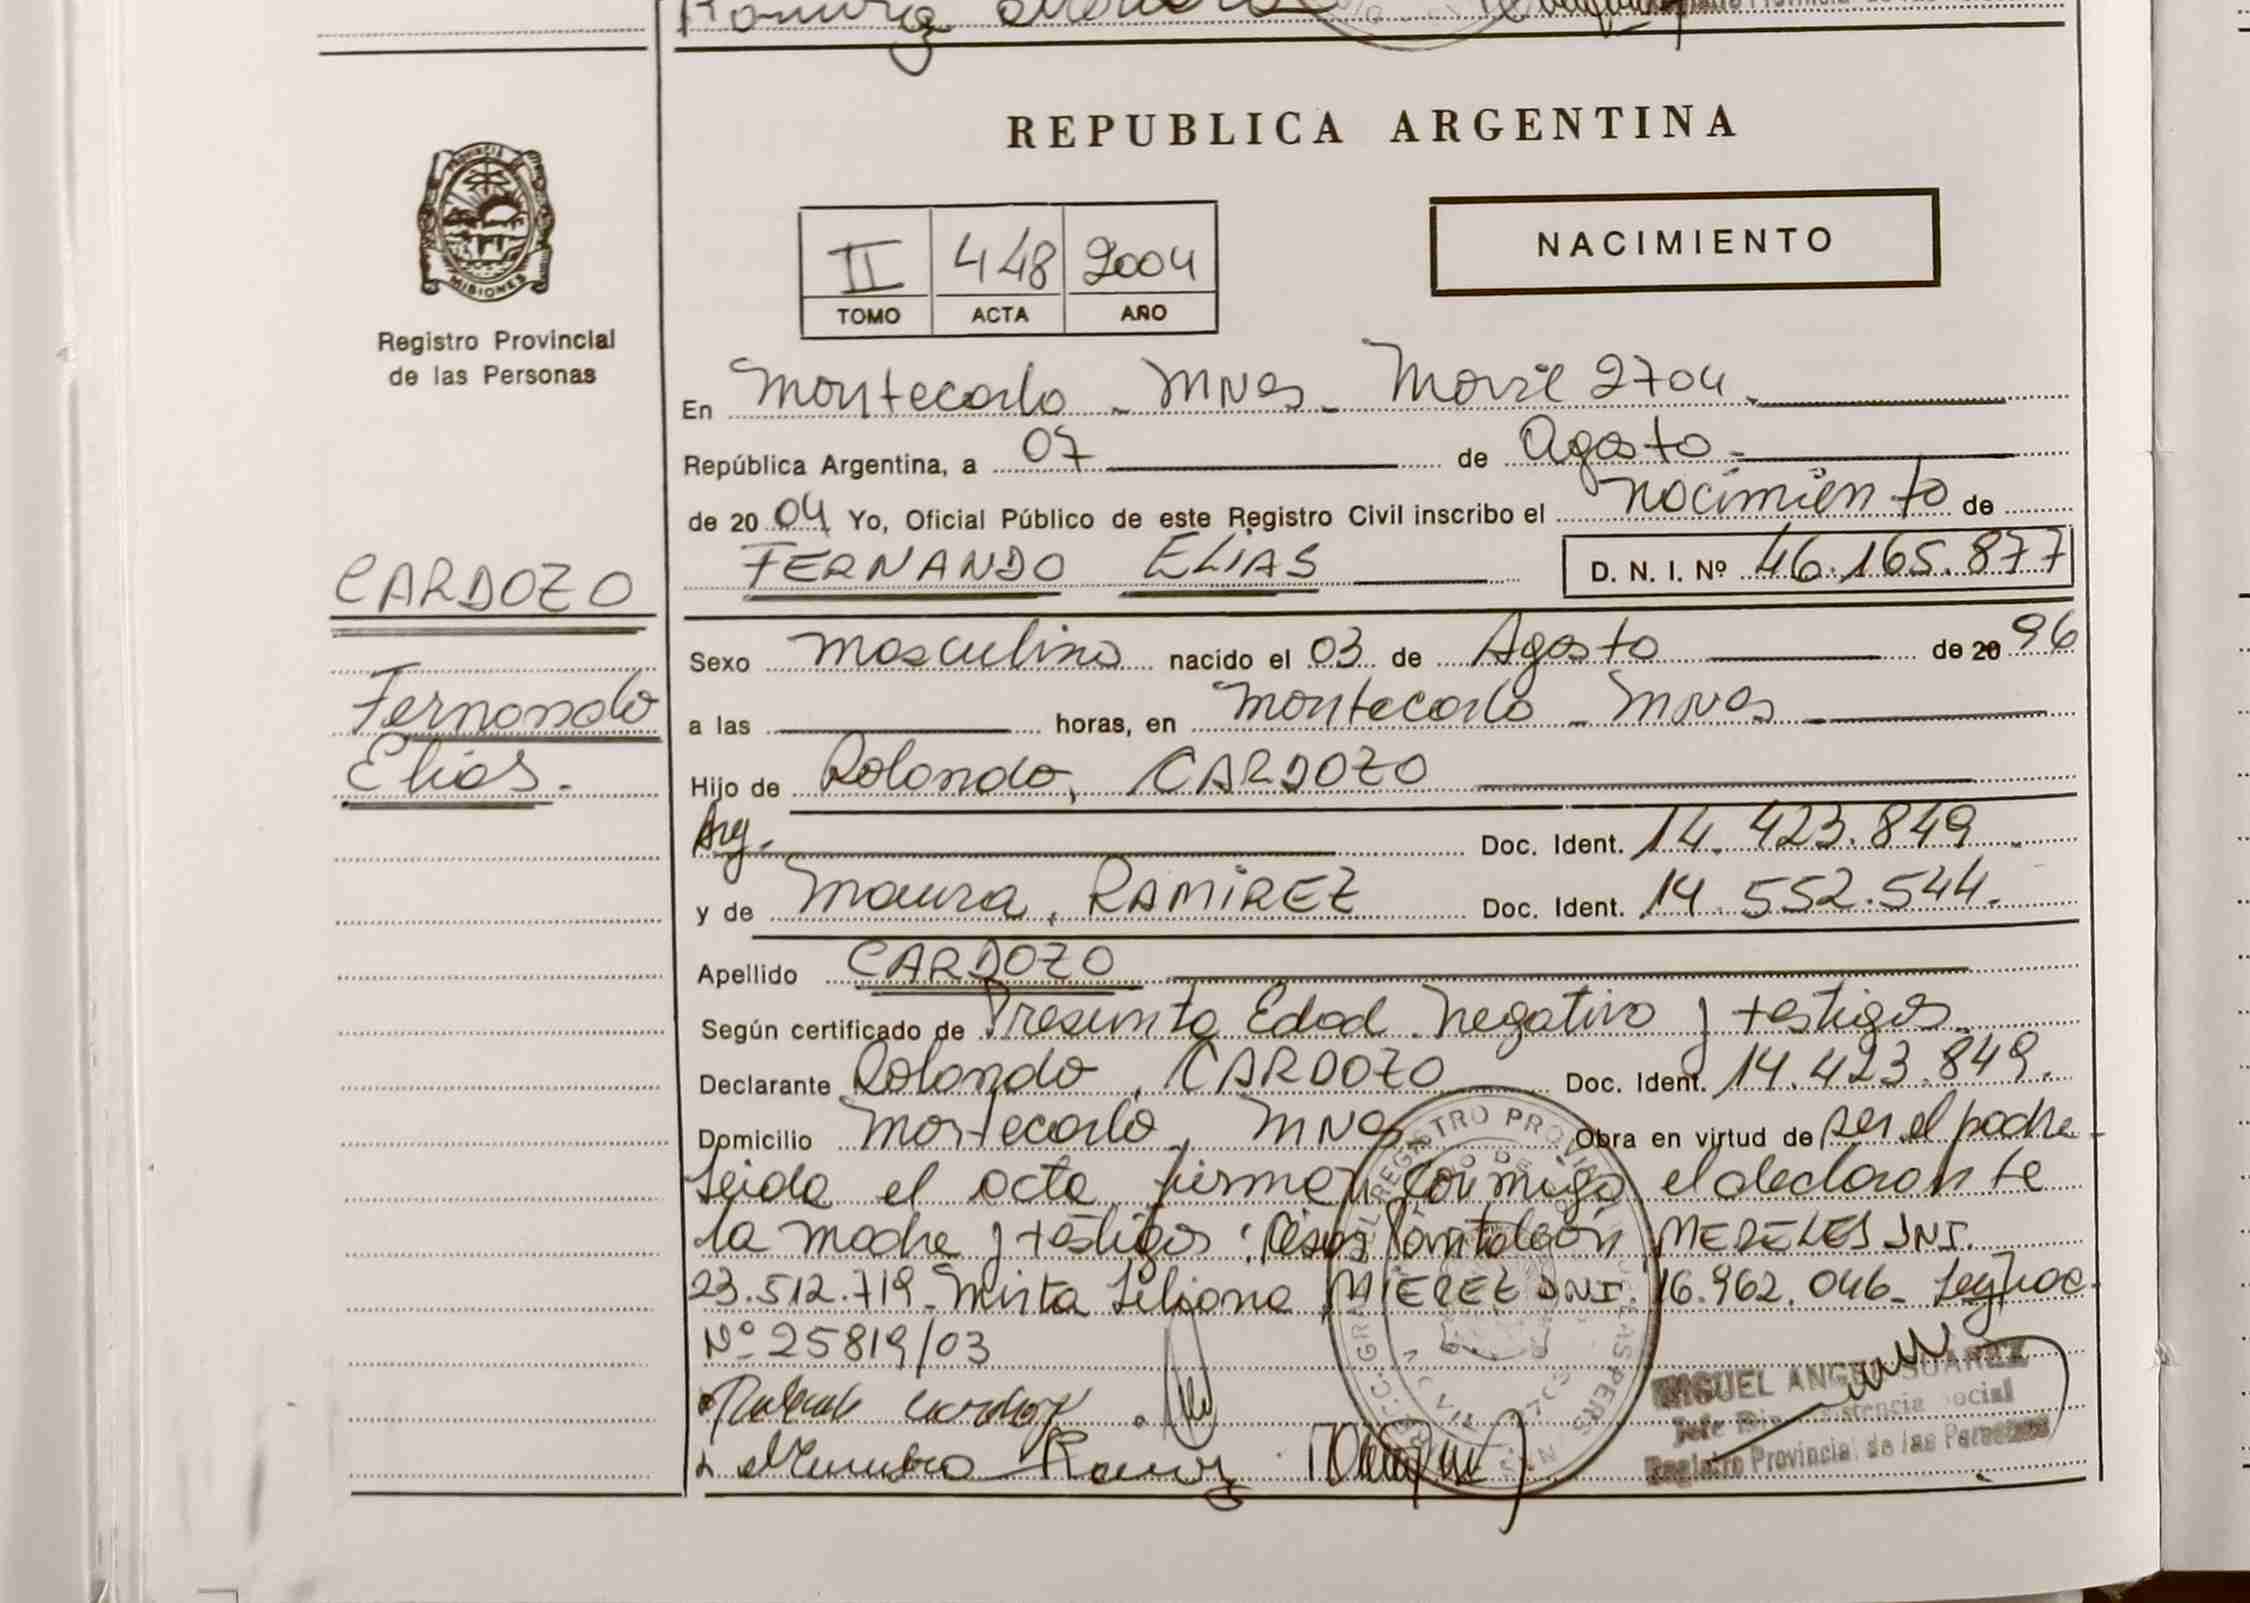 REPUBLICA ARGENTINA
PROVINCIA DE
MISIONES
Registro Provincial
de las Personas
NACIMIENTO
II 448 2004
TOMO ACTA AÑO
En Montecarlo - Mnes - Movil 2704.
República Argentina, a 07 de Agosto.
de 20 04 Yo, Oficial Público de este Registro Civil inscribo el nacimiento de
FERNANDO ELIAS D. N. I. Nº 46.165.877
CARDOZO
Fernando
Elias.
Sexo masculino nacido el 03 de Agosto de 20 96
a las horas, en Montecarlo - Mnes -
Hijo de Rolando, CARDOZO
Arg. Doc. Ident. 14.423.849.
y de Maura, RAMIREZ Doc. Ident. 14.552.544.
Apellido CARDOZO
Según certificado de Presunta Edad Negativo y testigos.
Declarante Rolando, CARDOZO Doc. Ident. 14.423.849.
Domicilio Montecarlo, Mnes Obra en virtud de ser el padre-
Leida el acta firman conmigo el declarante
la madre y testigos: Pantaleón MERELES DNI.
23.512.719- Mirta Liliana MIEREZ DNI. 16.962.046-
Nº 25819/03
MIGUEL ANGEL SUAREZ
Jefe Asistencia Social
Registro Provincial de las Personas